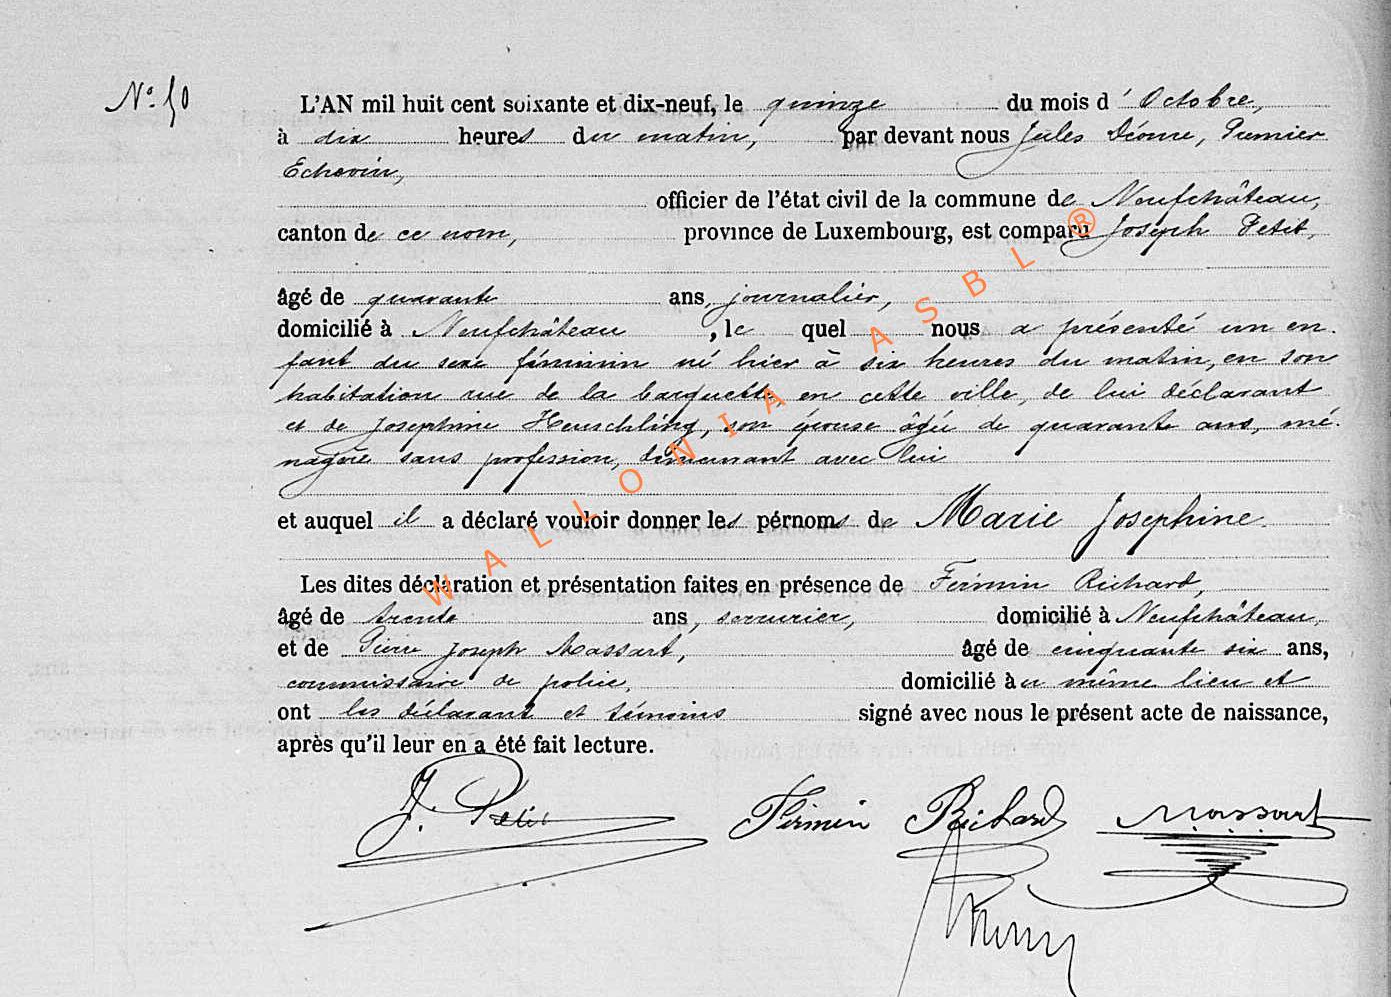 N° 50
L'AN mil huit cent soixante et dix-neuf, le quinze du mois d' Octobre,
à dix heures du matin, par devant nous Jules Déome, Premier
Echevin,
officier de l'état civil de la commune de Neufchâteau,
canton de ce nom, province de Luxembourg, est comparu Joseph Petit,
âgé de quarante ans, journalier,
domicilié à Neufchâteau, le quel nous a présenté un en-
fant du sexe féminin né hier à six heures du matin, en son
habitation rue de la barquette, en cette ville, de lui déclarant
et de Josephine Heuschling, son épouse âgée de quarante ans, mé-
nagère sans profession, demeurant avec lui
et auquel il a déclaré vouloir donner les pérnoms de Marie Josephine.
Les dites déclaration et présentation faites en présence de Firmin Richard,
âgé de trente ans, serrurier, domicilié à Neufchâteau,
et de Pierre Joseph Massart, âgé de cinquante six ans,
commissaire de police, domicilié au même lieu et
ont les déclarant et témoins signé avec nous le présent acte de naissance,
après qu'il leur en a été fait lecture.
J. Petit Firmin Richard Massart
WALLONIA ASBL ®